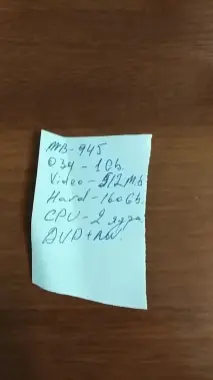 MB-945
ОЗУ - 1Gb.
Video - 512Mb
Hard - 160Gb.
CPU - 2 ядра
DVD+RW.